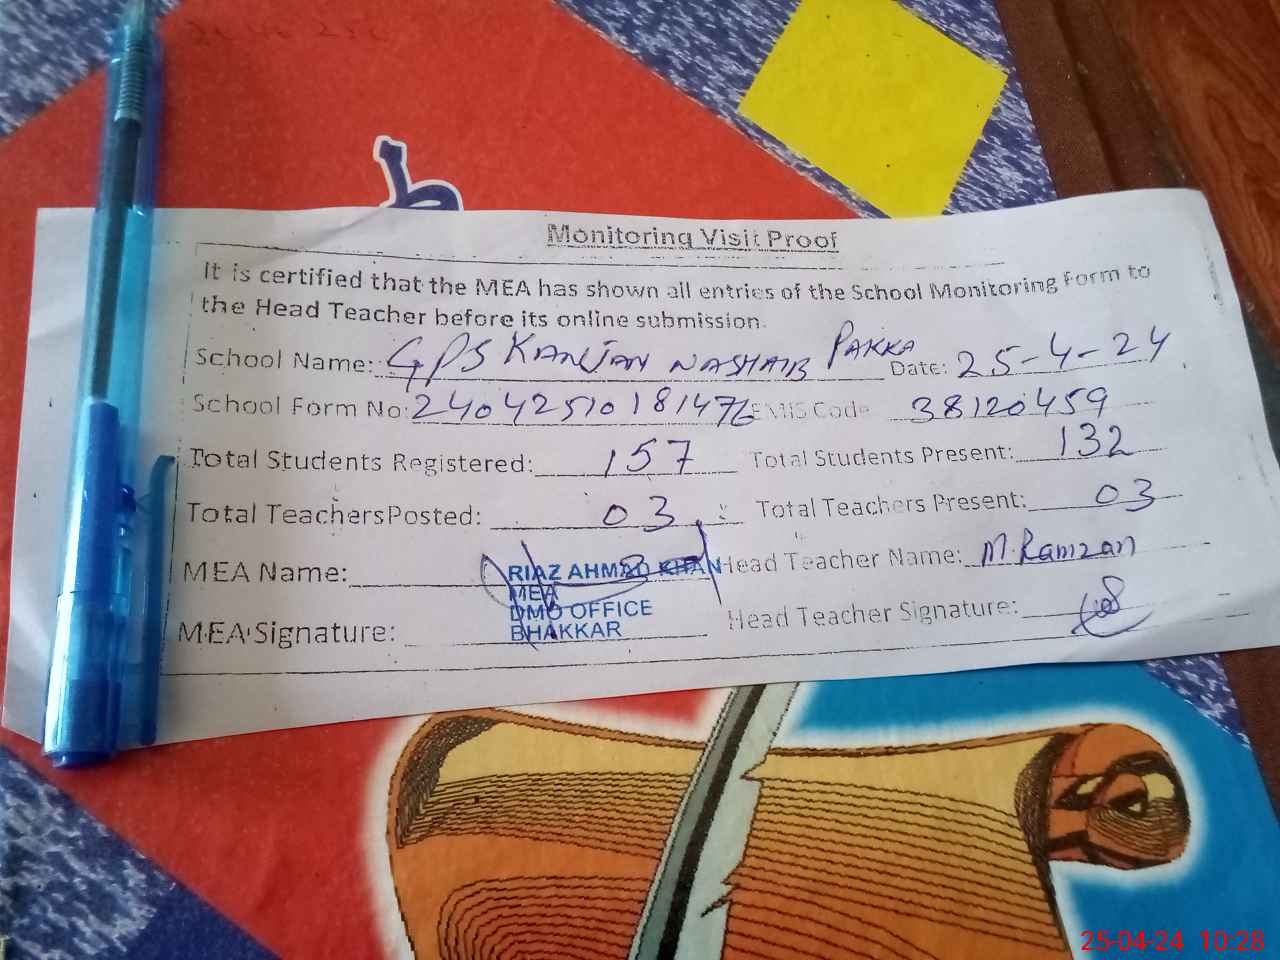 Monitoring Visit Proof
It is certified that the MEA has shown all entries of the School Monitoring Form to
the Head Teacher before its online submission.
School Name: GPS KANJAN NASHAIB PAKKA Date: 25-4-24
School Form No: 24042510181476 EMIS Code 38120459
Total Students Registered: 157 Total Students Present: 132
Total Teachers Posted: 03 Total Teachers Present: 03
MEA Name: RIAZ AHMAD KHAN Head Teacher Name: M. Ramzan
MEA
DMO OFFICE
MEA Signature: BHAKKAR Head Teacher Signature:
25-04-24 10:28